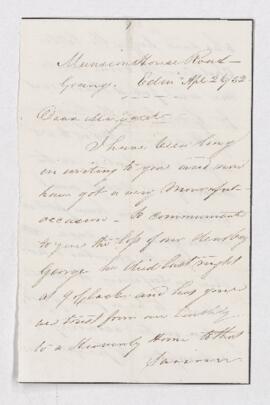 Mansion House Road –
Grange. Edinr Apl 29/52
Dear Margaret
I have been long
in writing to you and now
have got a very Mournful
occasion – to communicate
to you the loss of our dear boy
George he died last night
at 9 oclock and has gone
we trust from an Earthly
to a Heavenly Home to that